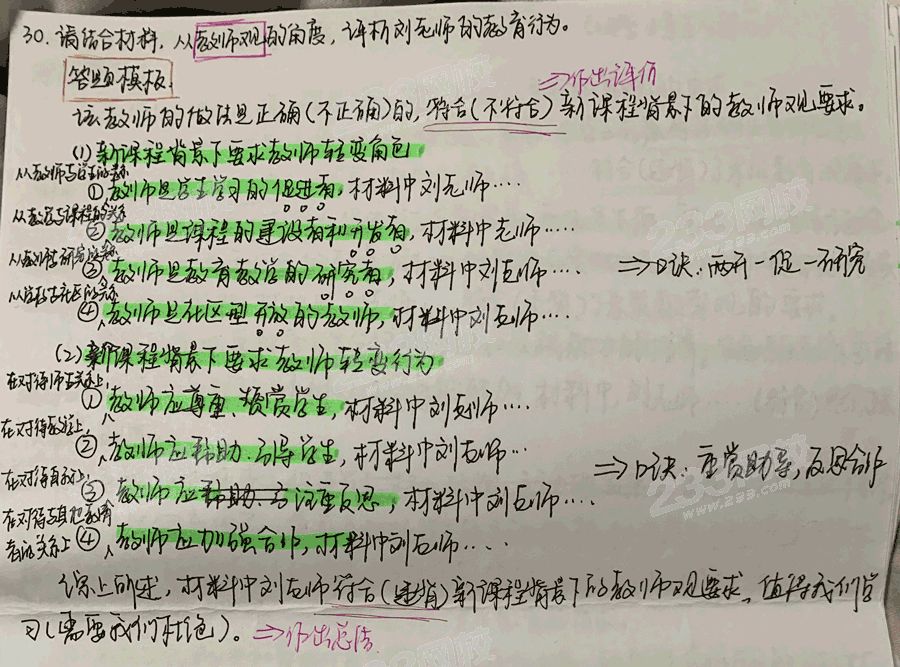 30. 请结合材料，从教师观的角度，评析刘老师的教育行为。
答题模板
⇒作出评价
该教师的做法是正确(不正确)的，符合(不符合)新课程背景下的教师观要求。
(1) 新课程背景下要求教师转变角色
从教师与学生的关系
① 教师是学生学习的促进者，材料中刘老师‥‥
从教学与课程的关系
② 教师是课程的建设者和开发者，材料中老师‥‥‥
从教学与研究的关系
③ 教师是教育教学的研究者，材料中刘老师‥‥ ⇒口诀：两开一促一研究
从学校与社区的关系
④ 教师是社区型开放的教师，材料中刘老师‥‥
(2) 新课程背景下要求教师转变行为
在对待师生关系上，
① 教师应尊重、赞赏学生，材料中刘老师‥‥
在对待教学上，
② 教师应帮助、引导学生，材料中刘老师‥‥ ⇒口诀：重赏助导，反思合作
在对待自我上，
③ 教师应注重反思，材料中刘老师‥‥
在对待与其他教育者的关系上
④ 教师应加强合作，材料中刘老师‥‥
综上所述，材料中刘老师符合(违背)新课程背景下的教师观要求，值得我们学
习(需要我们杜绝)。⇒作出总结
233网校
www.233.com